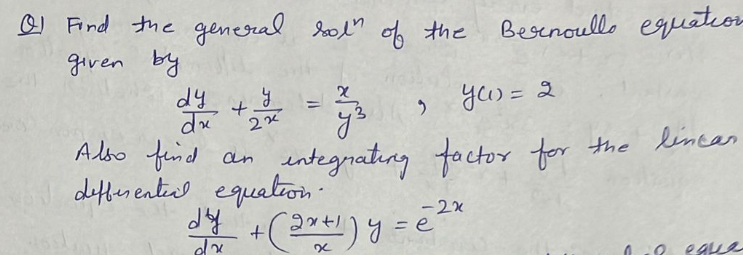 Q) Find the general solⁿ of the Bernoulls equation
given by
dy/dx + y/2x = x/y³ , y(1) = 2
Also find an integrating factor for the linear
differential equation.
dy/dx + (2x+1/x) y = e^-2x